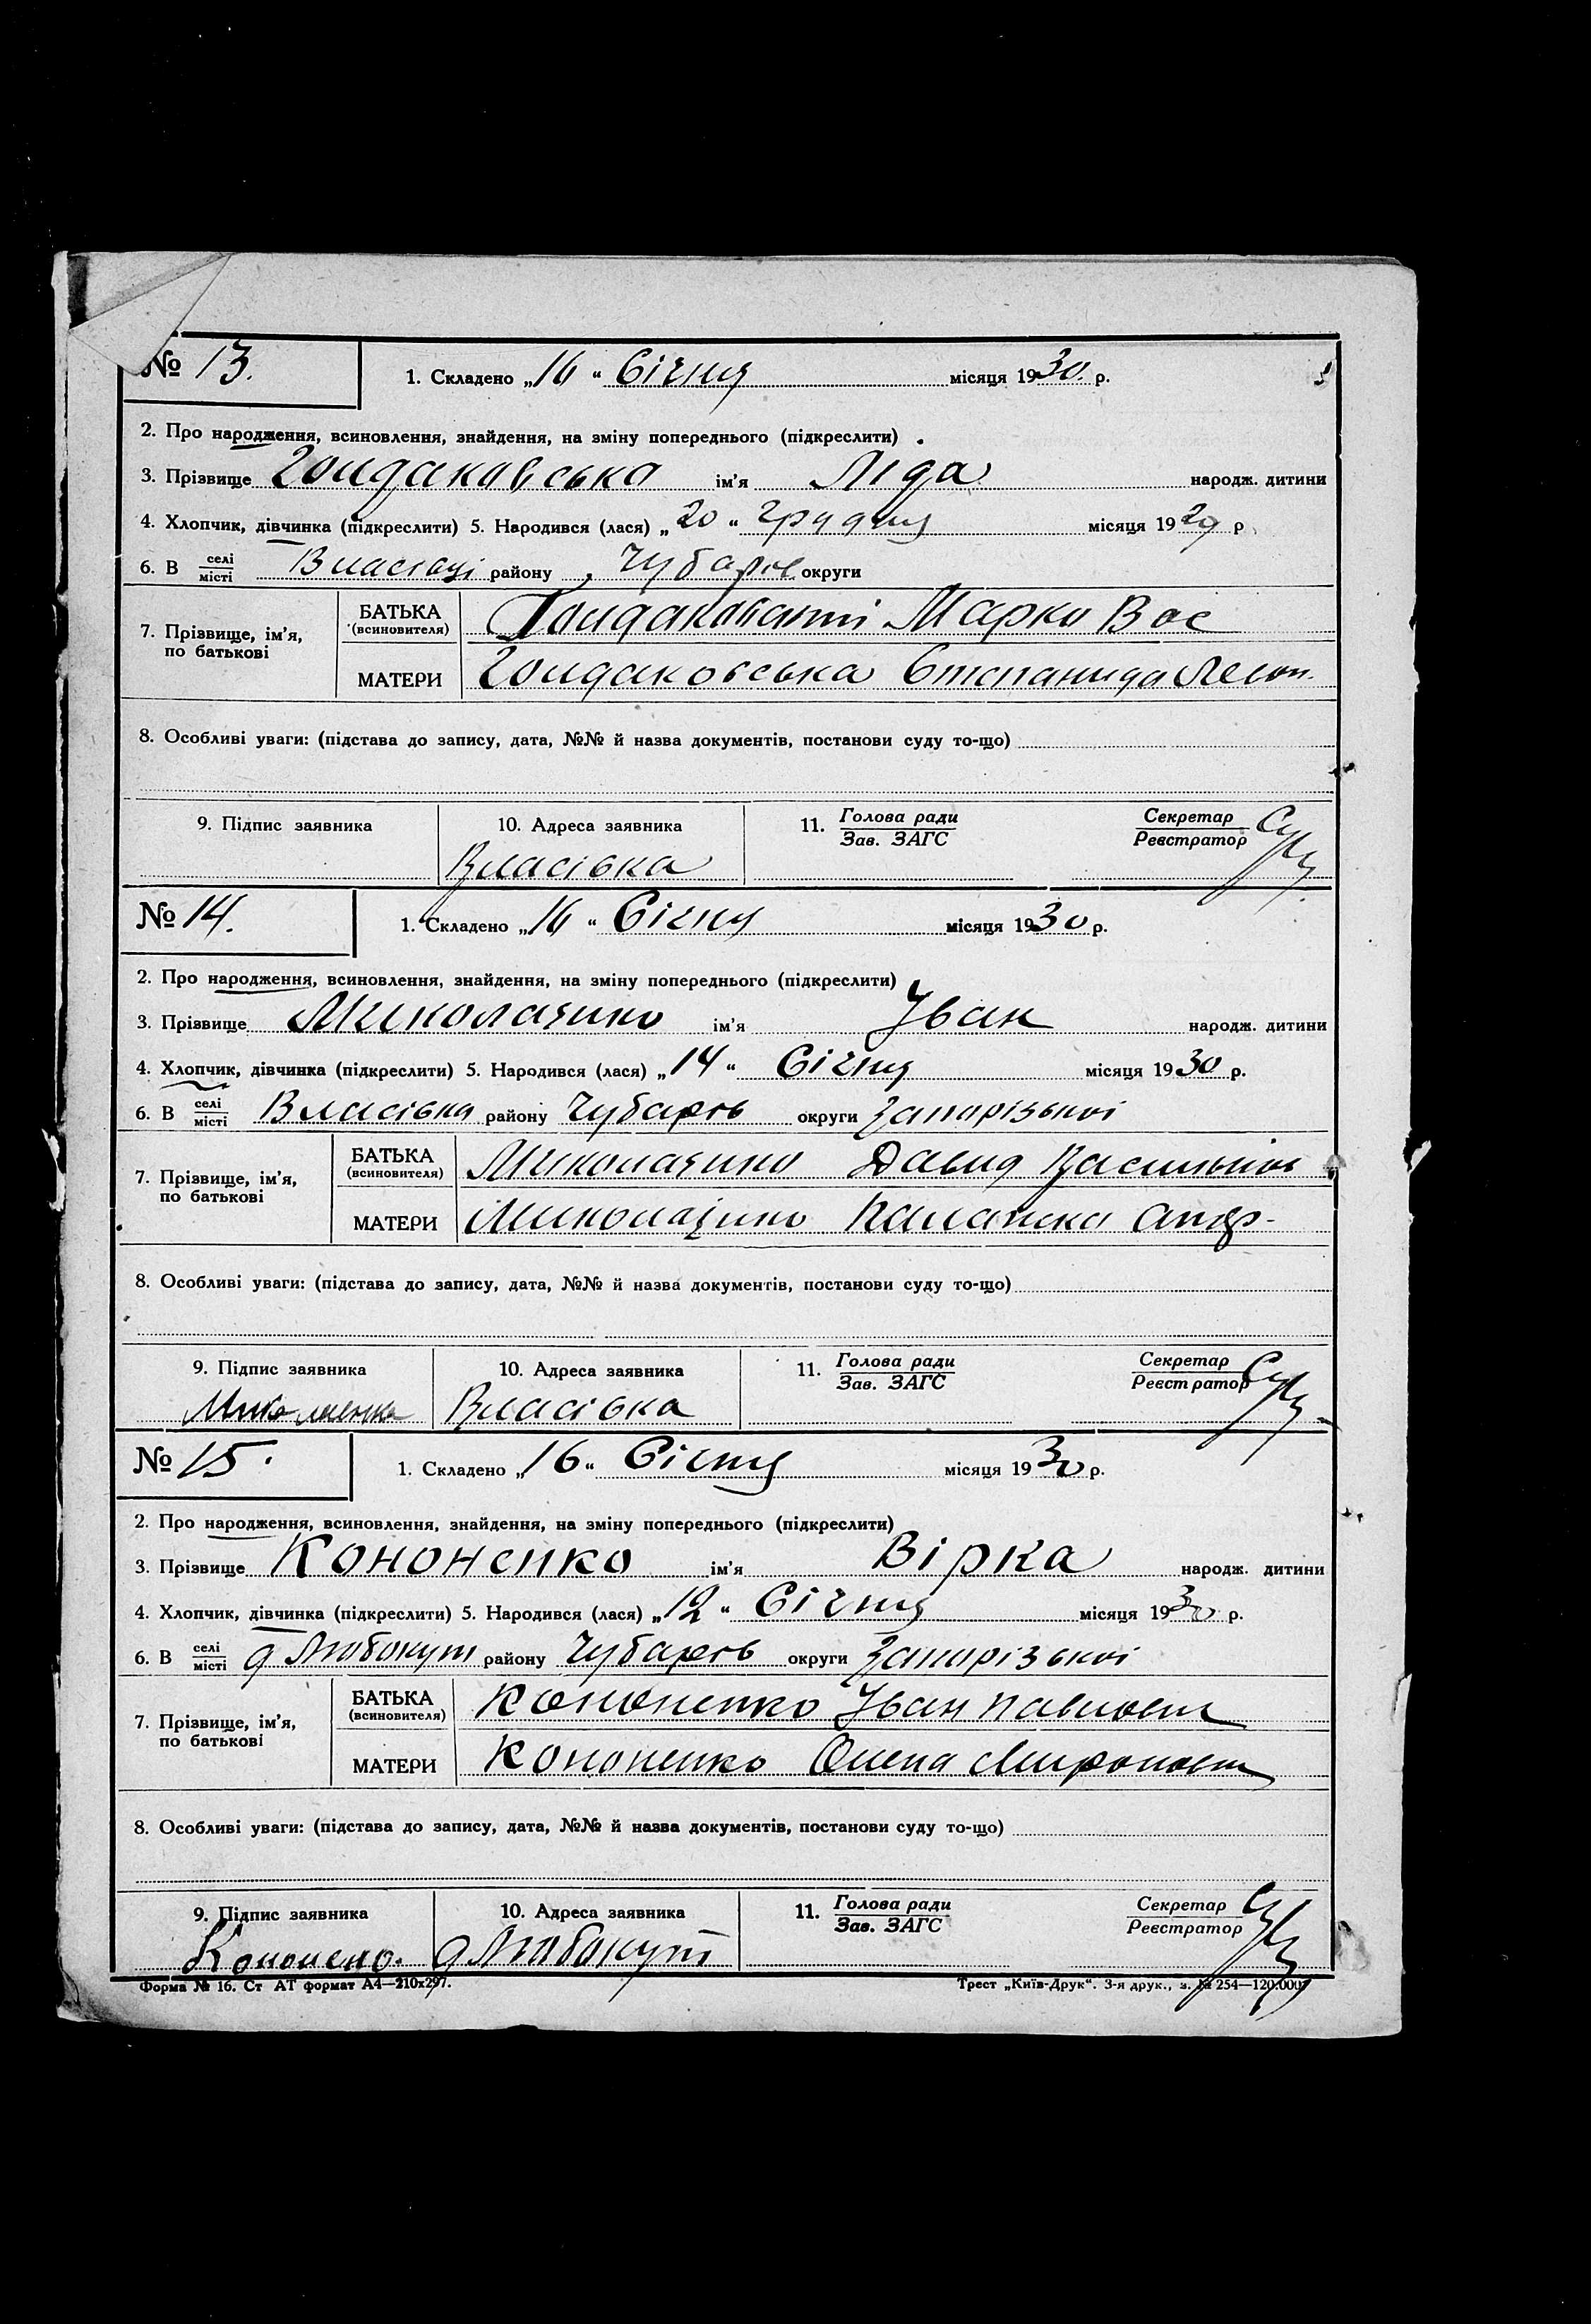 № 13.
1. Складено „16“ Січня місяця 1930. р.
2. Про народження, всиновлення, знайдення, на зміну попереднього (підкреслити)
3. Прізвище Гондаковська ім'я Ліда народж. дитини
4. Хлопчик, дівчинка (підкреслити) 5. Народився (лася) „20“ Грудня місяця 1929 р
6. В селі/місті Власівці району, Чубарів. округи
7. Прізвище, ім'я, по батькові
БАТЬКА (всиновителя) Марко Вас
МАТЕРИ Гондаковська Степанида
8. Особливі уваги: (підстава до запису, дата, №№ й назва документів, постанови суду то-що)
9. Підпис заявника 10. Адреса заявника 11. Голова ради/Зав. ЗАГС Секретар/Реєстратор
Власівка
№ 14.
1. Складено „16“ Січня місяця 1930 р.
2. Про народження, всиновлення, знайдення, на зміну попереднього (підкреслити)
3. Прізвище Миколаєнко ім'я Іван народж. дитини
4. Хлопчик, дівчинка (підкреслити) 5. Народився (лася) „14“ Січня місяця 1930 р.
6. В селі/місті Власівка району Чубарів округи Запорізької
7. Прізвище, ім'я, по батькові
БАТЬКА (всиновителя) Миколаєнко Давид Васильов
МАТЕРИ Миколаєнко Палажка Андр-
8. Особливі уваги: (підстава до запису, дата, №№ й назва документів, постанови суду то-що)
9. Підпис заявника 10. Адреса заявника 11. Голова ради/Зав. ЗАГС Секретар/Реєстратор
Миколаенко Власівка
№ 15.
1. Складено „16“ Січня місяця 1930 р.
2. Про народження, всиновлення, знайдення, на зміну попереднього (підкреслити)
3. Прізвище Кононенко ім'я Вірка народж. дитини
4. Хлопчик, дівчинка (підкреслити) 5. Народився (лася) „12“ Січня місяця 1930 р.
6. В селі/місті д Любокут району Чубарів округи Запорізької
7. Прізвище, ім'я, по батькові
БАТЬКА (всиновителя) Кононенко Іван Павлович
МАТЕРИ Кононенко Олена Мироновн
8. Особливі уваги: (підстава до запису, дата, №№ й назва документів, постанови суду то-що)
9. Підпис заявника 10. Адреса заявника 11. Голова ради/Зав. ЗАГС Секретар/Реєстратор
Кононено. д Любокут
Форма № 16. Ст АТ формат А4—210x297. Трест „Київ-Друк“. 3-я друк., з. № 254—120.000